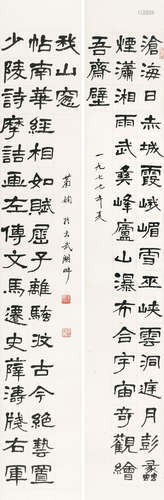 滄海日赤城霞峨嵋雪巫峽雲洞庭月彭蠡
煙瀟湘雨武彝峰廬山瀑布合宇宙奇觀繪
吾齋壁
一九七九年夏
少陵詩摩詰画左傳文馬遷史薛濤牋右軍
帖南華經相如賦屈子離騷收古今絕藝置
我山窗
蕭嫻於玄武湖畔